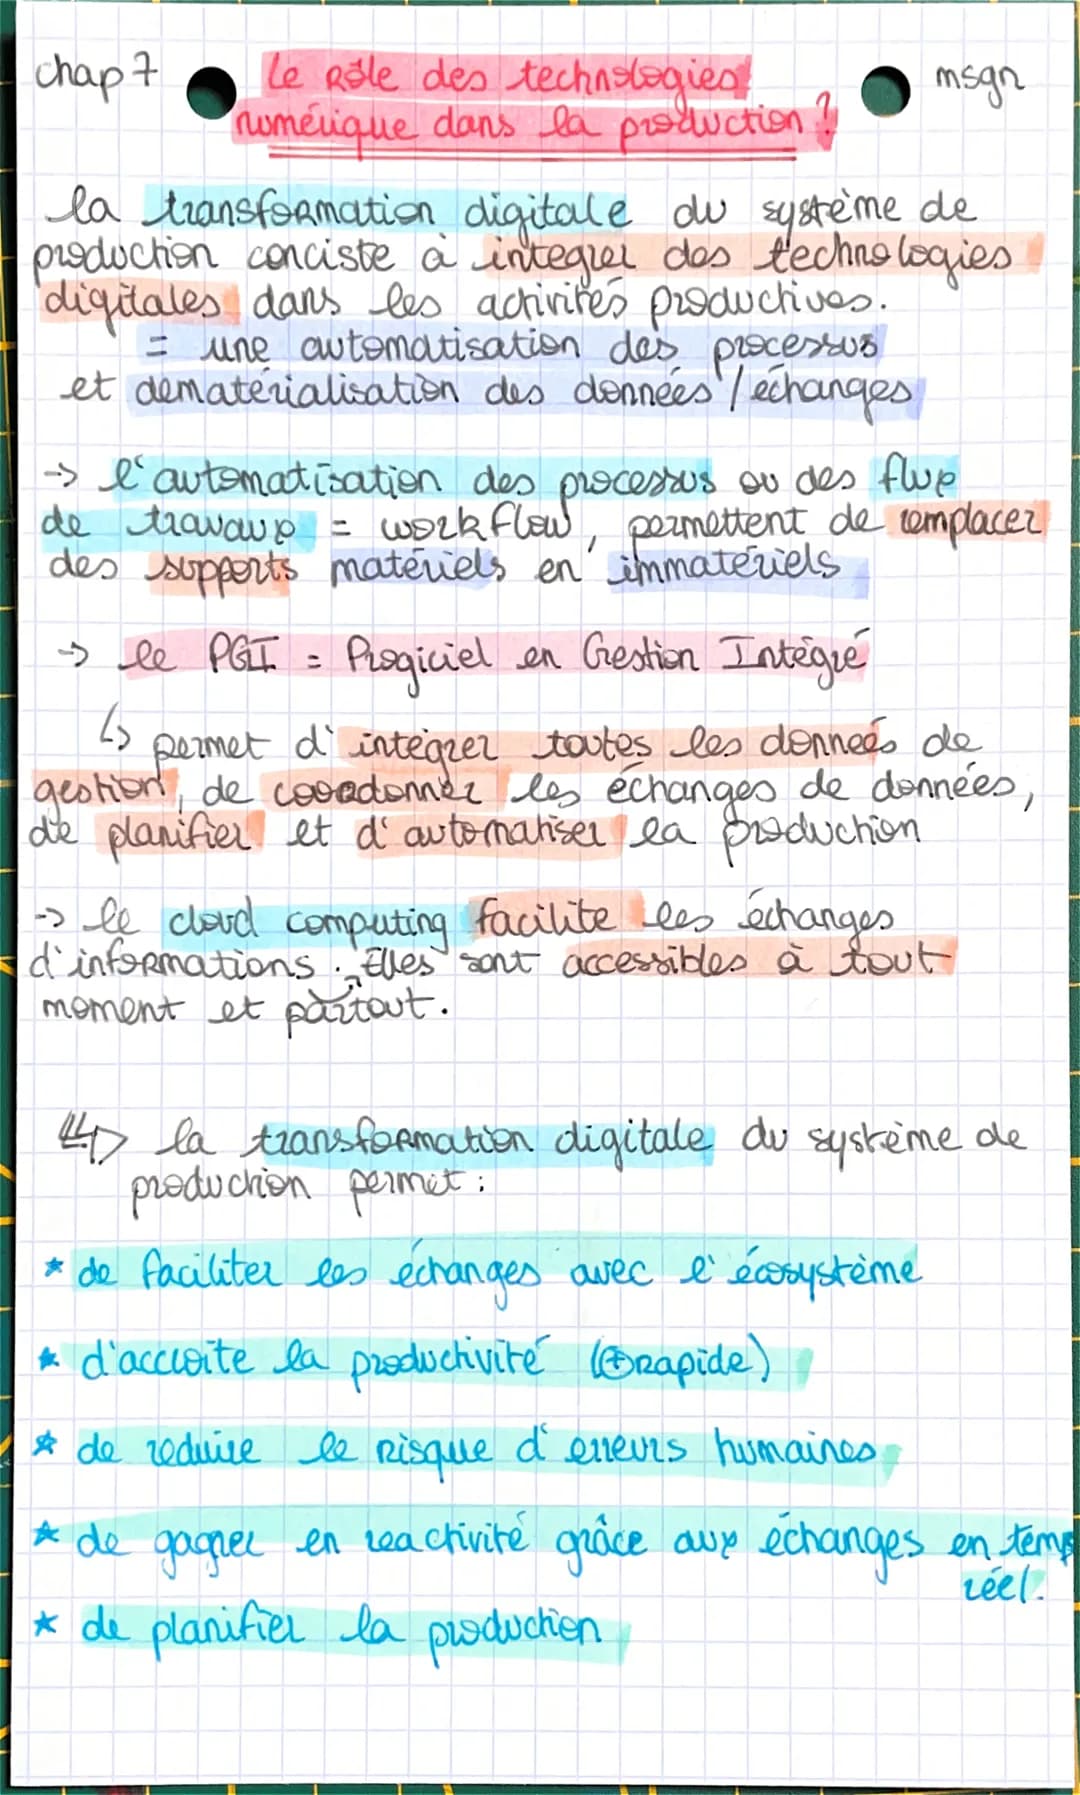 chap 7 Le Rôle des technologies msgn
numérique dans la production ?
la transformation digitale du système de
production conciste à integrer des technologies
digitales dans les activités productives.
= une automatisation des processus
et dematérialisation des données / échanges
-> l'automatisation des processus ou des flux
de travaux = workflow, permettent de remplacer
des supports matériels en immatériels
-> le PGI = Progiciel en Gestion Intégré
↳ permet d'integrer toutes les données de
gestion, de coordonner les échanges de données,
de planifier et d'automatiser la production
-> le cloud computing facilite les échanges
d'informations. Elles sont accessibles à tout
moment et partout.
↳ la transformation digitale du système de
production permet :
* de faciliter les échanges avec l'écosystème
* d'accroite la productivité (⊕rapide)
* de reduire le risque d'erreurs humaines
* de gagner en reactivité grâce aux échanges en temps
réel.
* de planifier la production